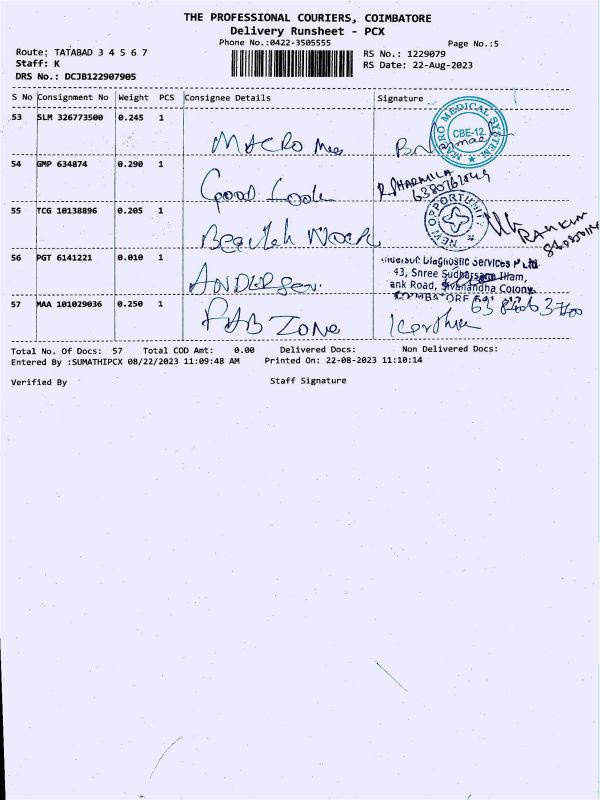 THE PROFESSIONAL COURIERS, COIMBATORE
Delivery Runsheet - PCX
Phone No.:0422-3505555
Page No.:5
Route: TATABAD 3 4 5 6 7
RS No.: 1229079
Staff: K
RS Date: 22-Aug-2023
DRS No.: DCJB122907905
S No Consignment No Weight PCS Consignee Details Signature
53 SLM 326773500 0.245 1 MACRO
MACRO MEDICAL SYSTEM
CBE-12.
54 GMP 634874 0.290 1 Good Look R. SHARMILA
55 TCG 10138896 0.205 1
NEW OPPORTUNITY
56 PGT 6141221 0.010 1 ANDERSEN
Diagnostic Services P Ltd
43, Shree Sudharsana Illam,
ank Road, Sivanandha Colony,
57 MAA 101029036 0.250 1 ZONE
Total No. Of Docs: 57 Total COD Amt: 0.00 Delivered Docs: Non Delivered Docs:
Entered By :SUMATHIPCX 08/22/2023 11:09:48 AM Printed On: 22-08-2023 11:10:14
Verified By Staff Signature